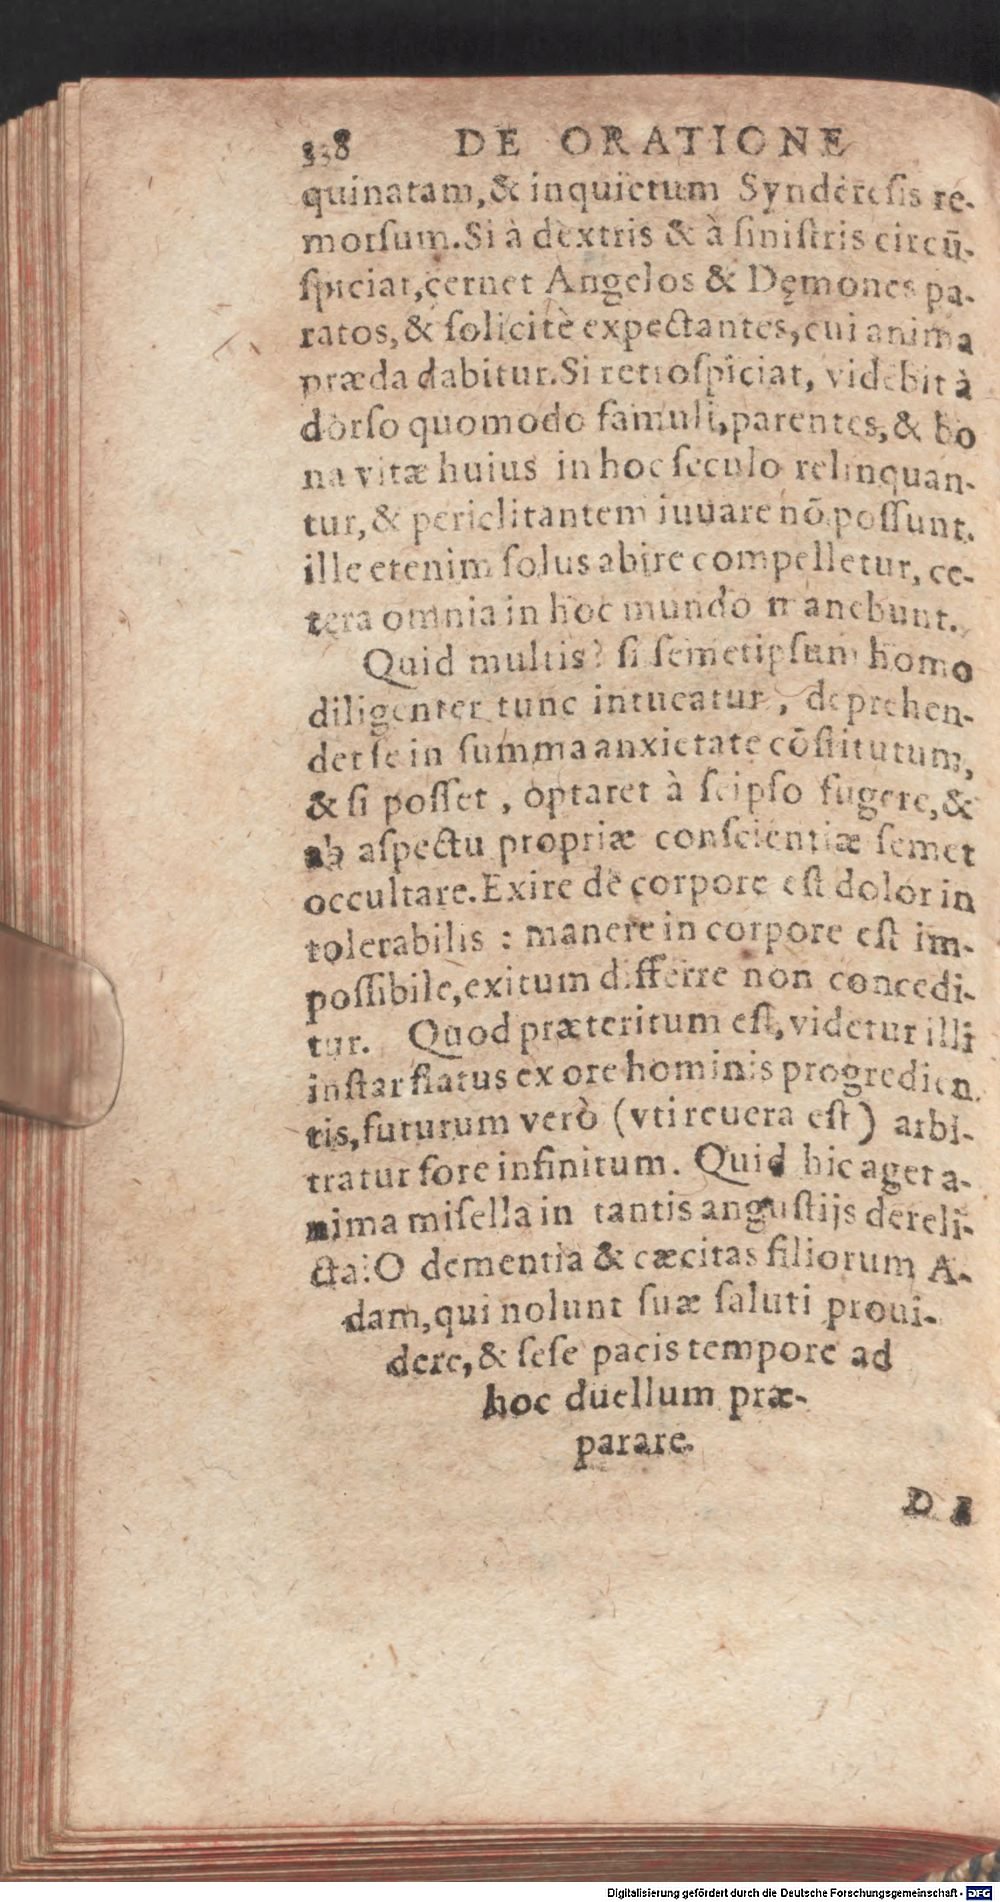 338 DE ORATIONE
quinatam,& inquietum Synderesis re-
morſum.Si à dextris & à ſiniſtris circū-
ſpiciat,cernet Angelos & Dęmones pa-
ratos,& ſolicitè expectantes,cui anima
præda dabitur.Si retroſpiciat, videbit à
dorſo quomodo famuli,parentes,& bo
na vitæ huius in hoc ſeculo relinquan-
tur,& periclitantem iuuare nō poſſunt.
ille etenim ſolus abire compelletur, ce-
tera omnia in hoc mundo manebunt.
Quid multis? ſi ſemetipſum homo
diligenter tunc intueatur, deprehen-
det ſe in ſumma anxietate cōſtitutum,
& ſi poſſet, optaret à ſeipſo fugere,&
ab aſpectu propriæ conſcientiæ ſemet
occultare.Exire de corpore eſt dolor in
tolerabilis : manere in corpore eſt im-
poſſibile,exitum differre non concedi-
tur. Quod præteritum eſt,videtur illi
inſtar flatus ex ore hominis progredien
tis,futurum verò (vti reuera eſt) arbi-
tratur fore infinitum. Quid hic aget a-
nima miſella in tantis anguſtijs dereli-
cta?O dementia & cæcitas filiorum A-
dam,qui nolunt ſuæ ſaluti proui-
dere,& ſeſe pacis tempore ad
hoc duellum præ-
parare.
DE
Digitalisierung gefördert durch die Deutsche Forschungsgemeinschaft - DFG